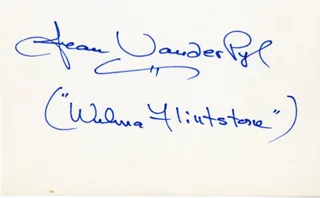 Jean VanderPyl
("Wilma Flintstone")